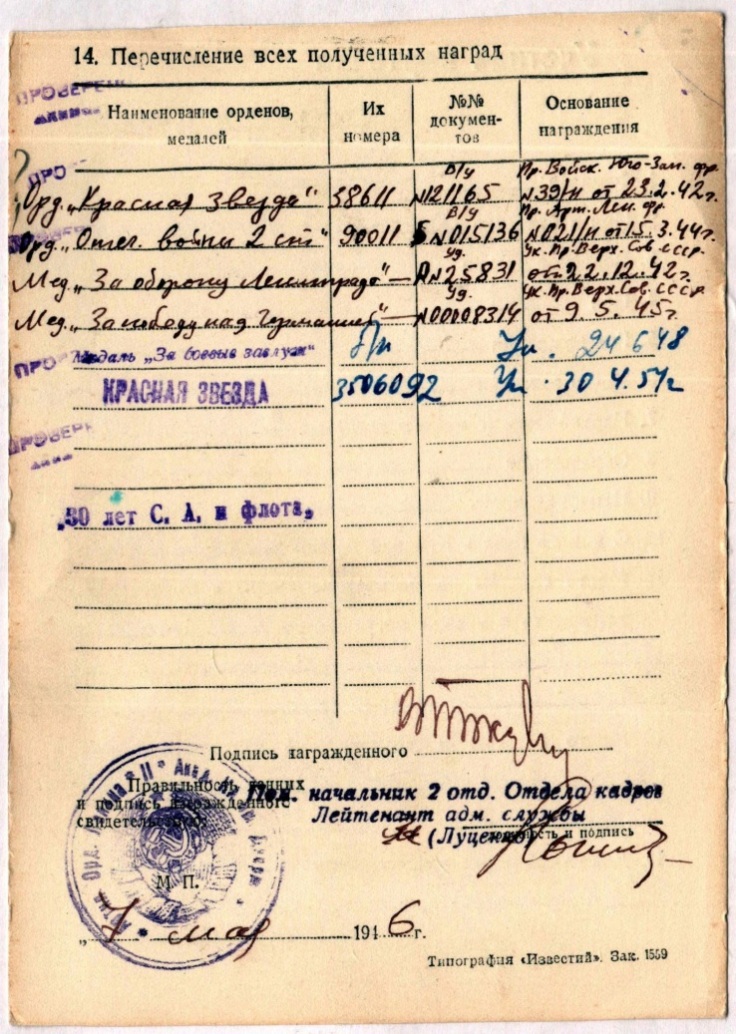 14. Перечисление всех полученных наград
ПРОВЕРЕН
Наименование орденов, медалей
Их номера
№№ документов
Основание награждения
Орд. „Красная Звезда" 38611 В/у №121165 Пр. Войск. Юго-Зап. фр. №39/н от 23.2.42г.
Орд. „Отеч. войны 2 ст" 90011 В/у Б №015136 Пр. Арт. Лен. фр. №021/н от 15.3.44г.
Мед. „За оборону Ленинграда" — Уд. А№25831 Ук. Пр. Верх. Сов СССР от 22.12.42г.
Мед. — Уд. №0008314 Ук. Пр. Верх. Сов. СССР от 9.5.45г.
ПРО
Медаль „За боевые заслуги" Ук. 24 6 48
КРАСНАЯ ЗВЕЗДА 3506092 Ук. 30 4.51г
ПРОВЕРЕ
„30 лет С. А. и флота„
Подпись награжденного
Правильность данных
и подпись награжденного
свидетельствую:
Пом. начальник 2 отд. Отдела кадров
Лейтенант адм. службы
(Луценко)
и подпись
М. П.
„ 7 " мая 1946 г.
Типография «Известий». Зак. 1559